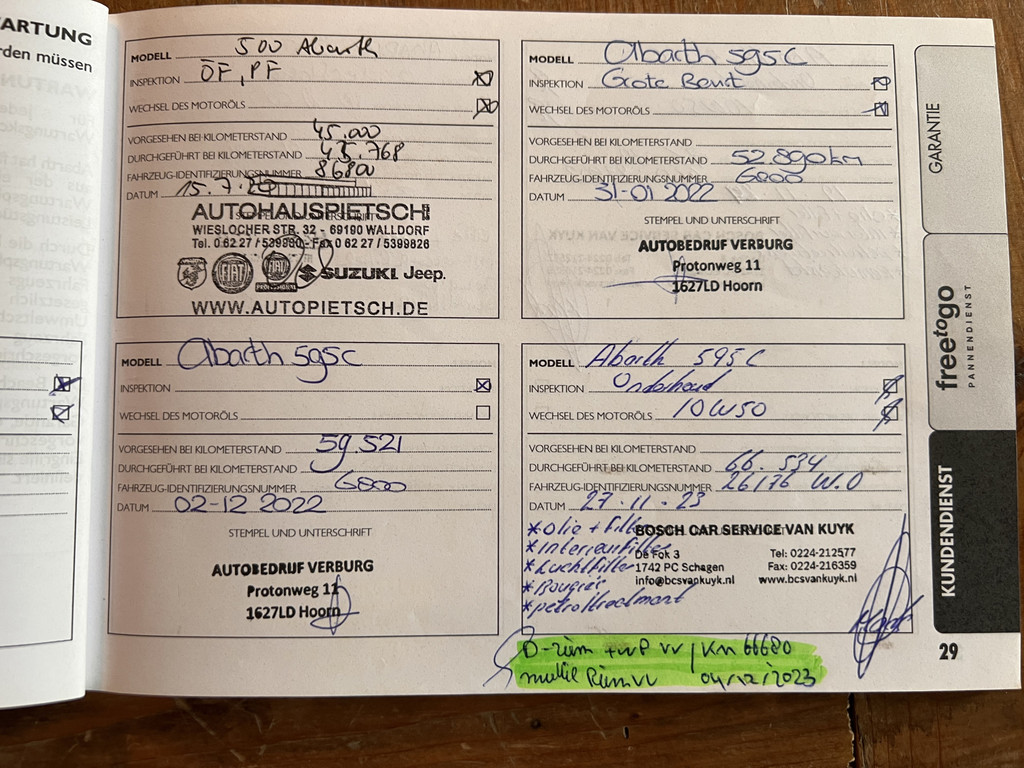 ARTUNG
rden müssen
MODELL 500 Abarth
INSPEKTION ÖF, PF
WECHSEL DES MOTORÖLS
VORGESEHEN BEI KILOMETERSTAND 45.000
DURCHGEFÜHRT BEI KILOMETERSTAND 43.768
FAHRZEUG-IDENTIFIZIERUNGSNUMMER 86800
DATUM 15.7.
STEMPEL UND UNTERSCHRIFT
AUTOHAUSPIETSCH
WIESLOCHER STR. 32 - 69190 WALLDORF
Tel. 0 62 27 / 539880 - Fax 0 62 27 / 5399826
FIAT FIAT PROFESSIONAL SUZUKI Jeep.
WWW.AUTOPIETSCH.DE
MODELL Abarth 595C
INSPEKTION Grote Beurt
WECHSEL DES MOTORÖLS
VORGESEHEN BEI KILOMETERSTAND
DURCHGEFÜHRT BEI KILOMETERSTAND 52.890km
FAHRZEUG-IDENTIFIZIERUNGSNUMMER 6800
DATUM 31-01 2022
STEMPEL UND UNTERSCHRIFT
AUTOBEDRIJF VERBURG
Protonweg 11
1627LD Hoorn
MODELL Abarth 595C
INSPEKTION
WECHSEL DES MOTORÖLS
VORGESEHEN BEI KILOMETERSTAND 59.521
DURCHGEFÜHRT BEI KILOMETERSTAND
FAHRZEUG-IDENTIFIZIERUNGSNUMMER 6800
DATUM 02-12 2022
STEMPEL UND UNTERSCHRIFT
AUTOBEDRIJF VERBURG
Protonweg 11
1627LD Hoorn
MODELL Abarth 595C
INSPEKTION Onderhoud
WECHSEL DES MOTORÖLS 10W50
VORGESEHEN BEI KILOMETERSTAND
DURCHGEFÜHRT BEI KILOMETERSTAND 66.534
FAHRZEUG-IDENTIFIZIERUNGSNUMMER 26176 W.O
DATUM 27-11-23
* Olie + filter
* Interieurfilter
* Luchtfilter
* Bougies
* petroltreatment
BOSCH CAR SERVICE VAN KUYK
De Fok 3 Tel: 0224-212577
1742 PC Schagen Fax: 0224-216359
info@bcsvankuyk.nl www.bcsvankuyk.nl
D-riem + WP vv / KM 66680
multie Riem vv 04/12/2023
GARANTIE
freetogo
PANNENDIENST
KUNDENDIENST
29